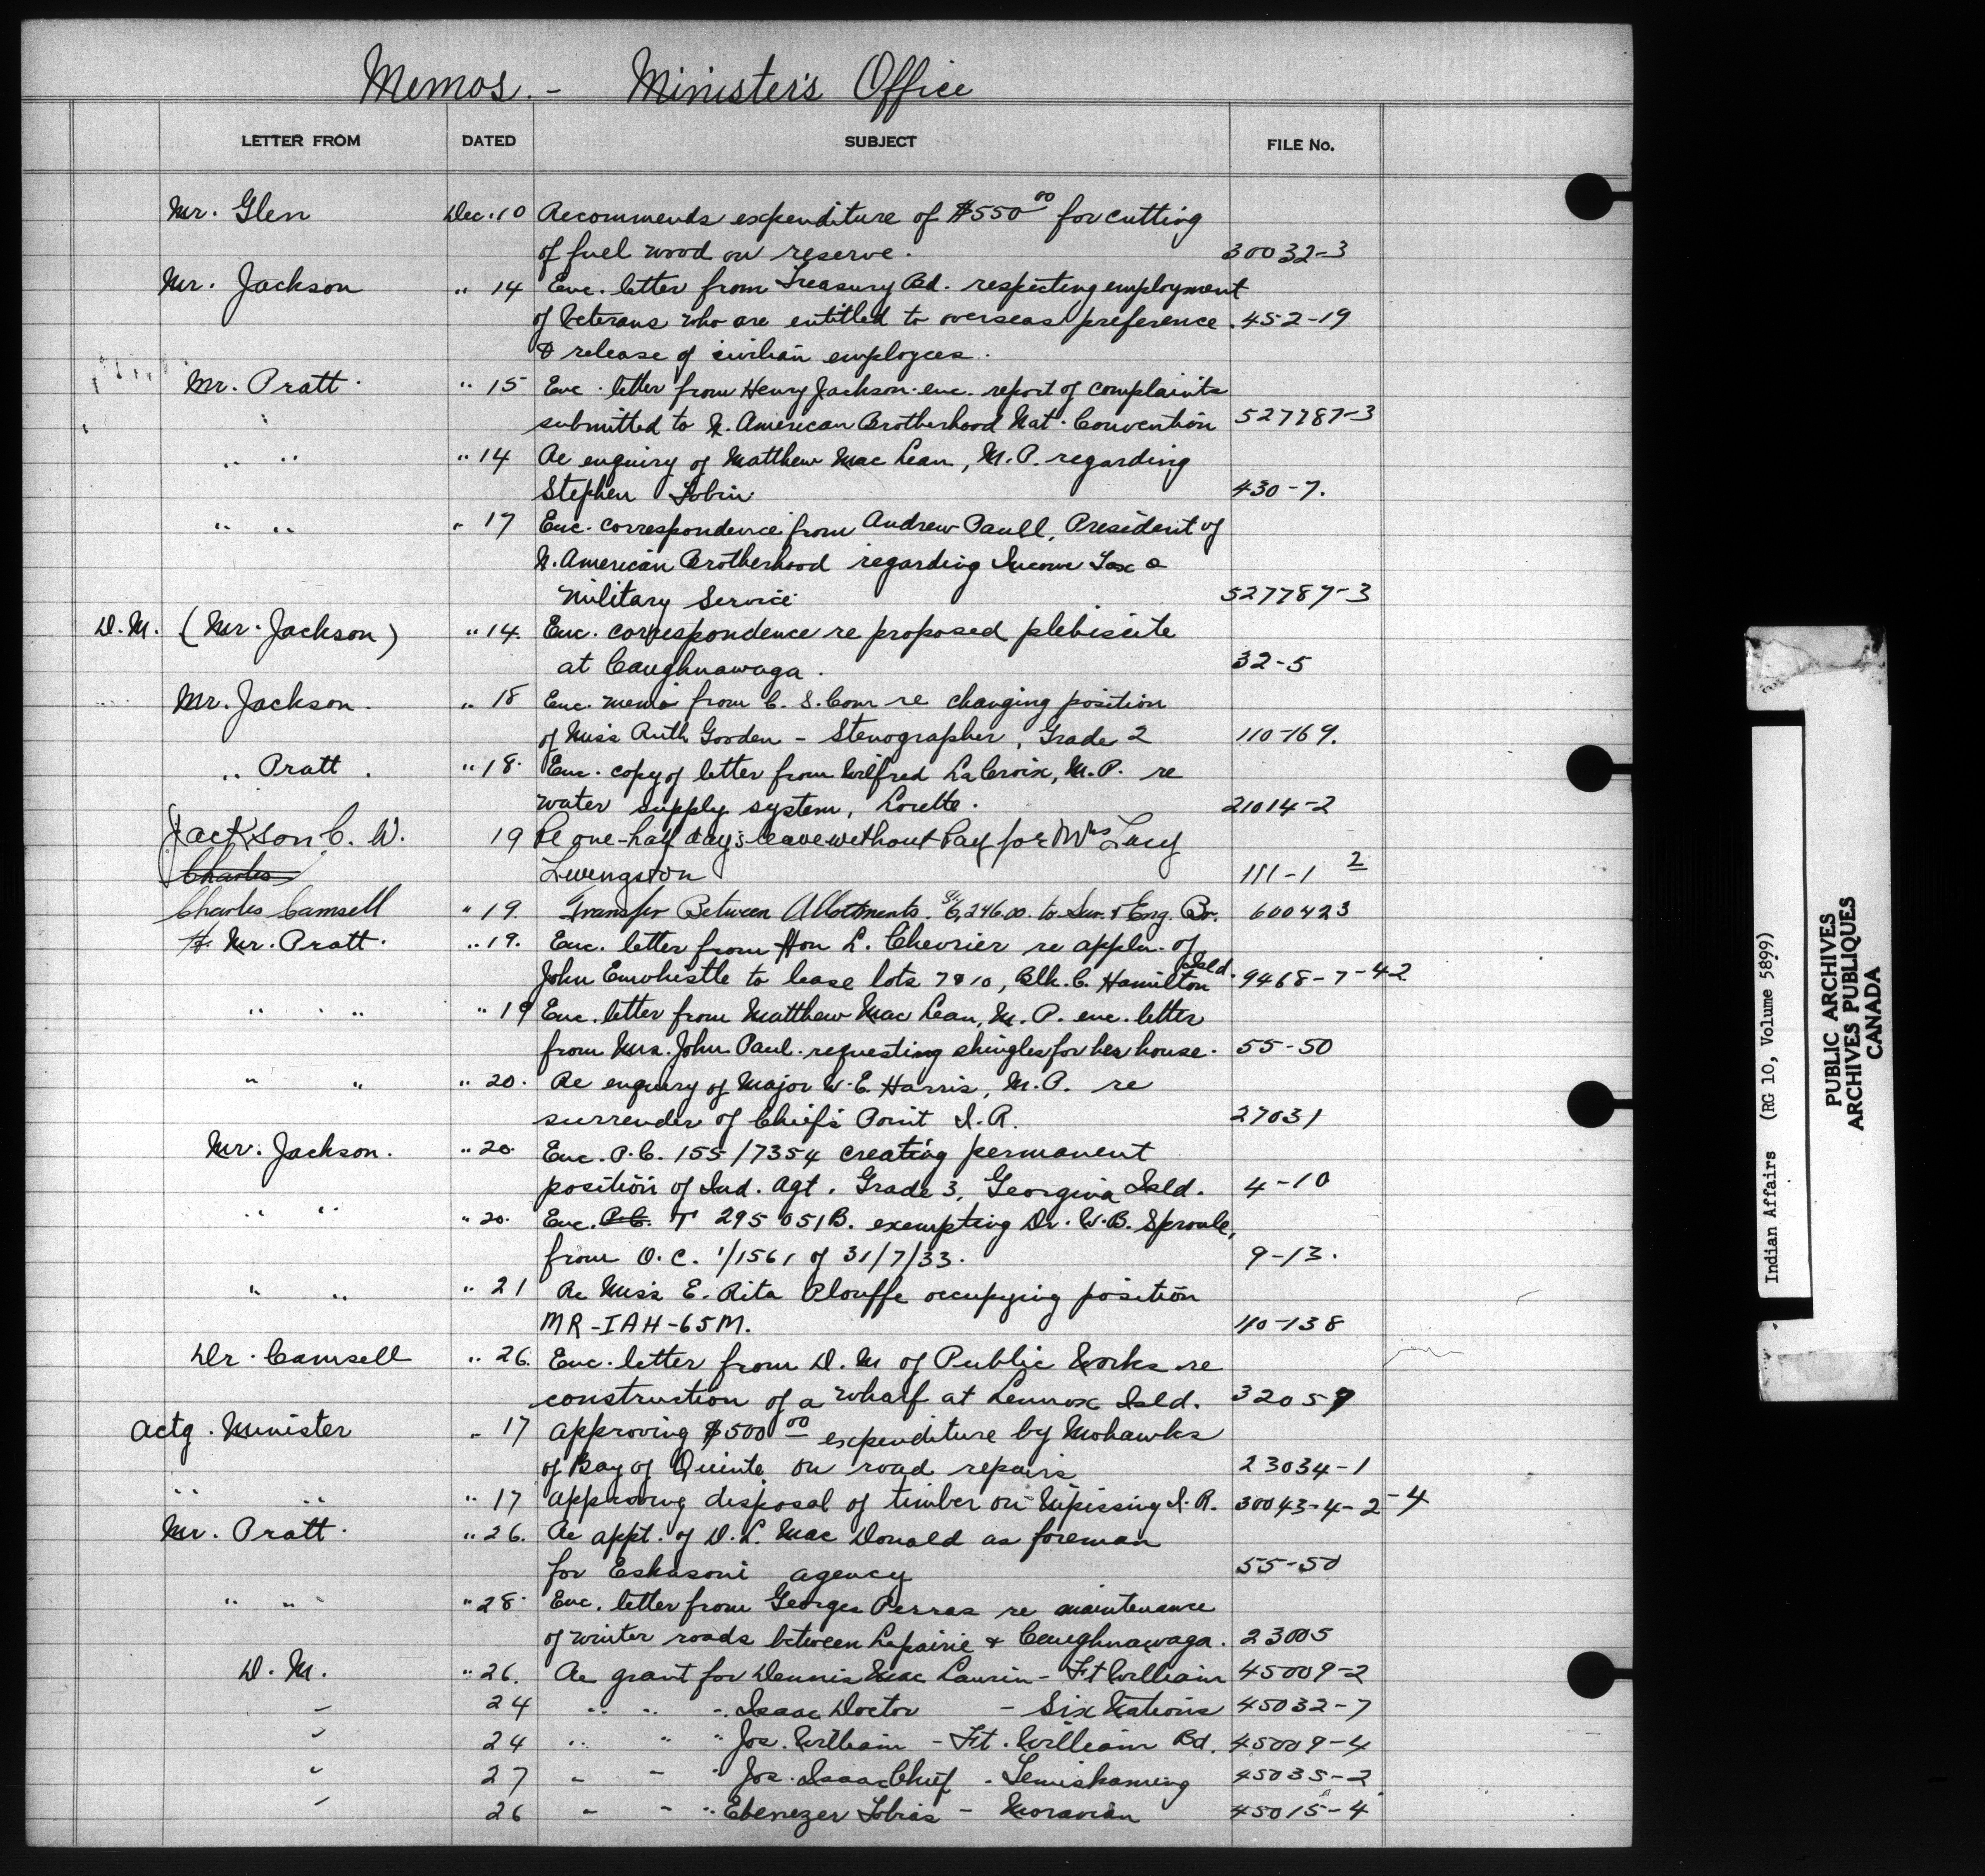 Memos. - Minister's Office
LETTER FROM DATED SUBJECT FILE No.
Mr. Glen Dec. 10 Recommends expenditure of $550 00 for cutting
of fuel wood on reserve. 30032-3
Mr. Jackson " 14 Enc. letter from Treasury Bd. respecting employment
of Veterans who are entitled to overseas preference. 452-19
& release of civilian employees.
Mr. Pratt " 15 Enc. letter from Henry Jackson enc. report of complaints
submitted to N. American Brotherhood Nat. Convention 527787-3
" " " 14 Re enquiry of Matthew Mac Lean, M.P. regarding
Stephen Tobin 430-7.
" " " 17 Enc. correspondence from Andrew Paull, President of
N. American Brotherhood regarding Income Tax &
Military Service 527787-3
D.M. (Mr. Jackson) " 14. Enc. correspondence re proposed plebiscite
at Caughnawaga. 32-5
Mr. Jackson. " 18 Enc. memo from C. S. Com re changing position
of Miss Ruth Gooden - Stenographer, Grade 2 110-169.
" Pratt. " 18. Enc. copy of letter from Wilfred LaCroix, M.P. re
water supply system, Lorette. 21014-2
Jackson C. W. 19 Re one-half day's leave without Pay for Mrs Lucy
Charles Livengston 111-1 2
Charles Camsell " 19. Transfer Between Allotments. $6,246.00 to Sur. & Eng. Br. 600423
Mr. Pratt. " 19. Enc. letter from Hon L. Chevrier re appln. of
John Emwhistle to lease lots 7 & 10, Blk. C. Hamilton Isld. 9468-7-42
" " " 19 Enc. letter from Matthew Mac Lean, M.P. enc. letter
from Mrs. John Paul requesting shingles for her house. 55-50
" " " 20. Re enquiry of Major W. E. Harris, M.P. re
surrender of Chief's Point I.R. 27031
Mr. Jackson. " 20. Enc. P.C. 155/7354 creating permanent
position of Ind. Agt. Grade 3, Georgina Isld. 4-10
" " " 20. Enc. P.C. T 295051B. exempting Dr. W.B. Sproule,
from O.C. 1/1561 of 31/7/33. 9-13.
" " " 21 Re Miss E. Rita Plouffe occupying position
MR-IAH-65M. 110-138
Dr. Camsell " 26. Enc. letter from D. M of Public Works re
construction of a wharf at Lennox Isld. 32059
Actg. Minister " 17 Approving $500 00 expenditure by Mohawks
of Bay of Quinte on road repairs 23034-1
" " " 17 Approving disposal of timber on Nipissing I.R. 30043-4-2-4
Mr. Pratt. " 26. Re appt. of D. L. Mac Donald as foreman
for Eskasoni agency 55-50
" " " 28. Enc. letter from Georges Perras re maintenance
of winter roads between Laprairie & Caughnawaga. 23005
D. M. " 26. Re grant for Dennis Mac Laurin - Ft William 45009-2
" 24 " " " Isaac Doctor - Six Nations 45032-7
" 24 " " " Jos. William - Ft. William Bd. 45009-4
" 27 " " " Jos. Isaac Chief - Temiskaming 45035-2
" 26 " " " Ebenezer Tobias - Moravian 45015-4
Indian Affairs (RG 10, Volume 5899)
PUBLIC ARCHIVES
ARCHIVES PUBLIQUES
CANADA